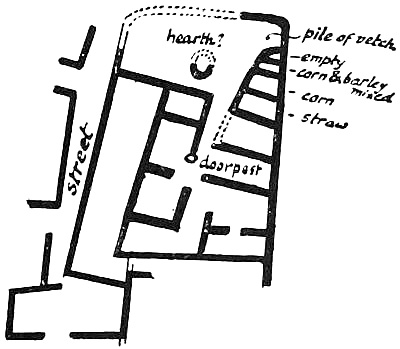 hearth?
pile of vetch
empty
corn & barley
mixed
corn
straw
doorpost
street